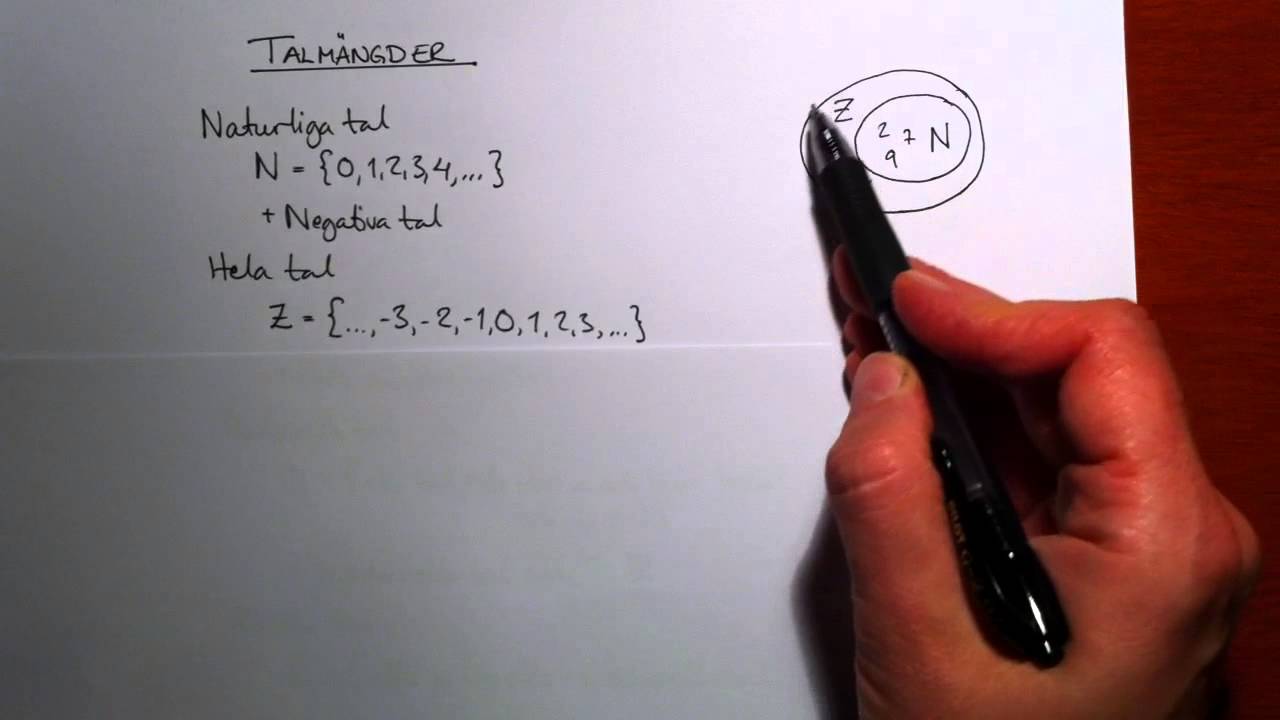 TALMÄNGDER
Naturliga tal
N = {0,1,2,3,4,...}
+ Negativa tal
Hela tal
Z = {...,-3,-2,-1,0,1,2,3,...}
Z
2 7 N
9